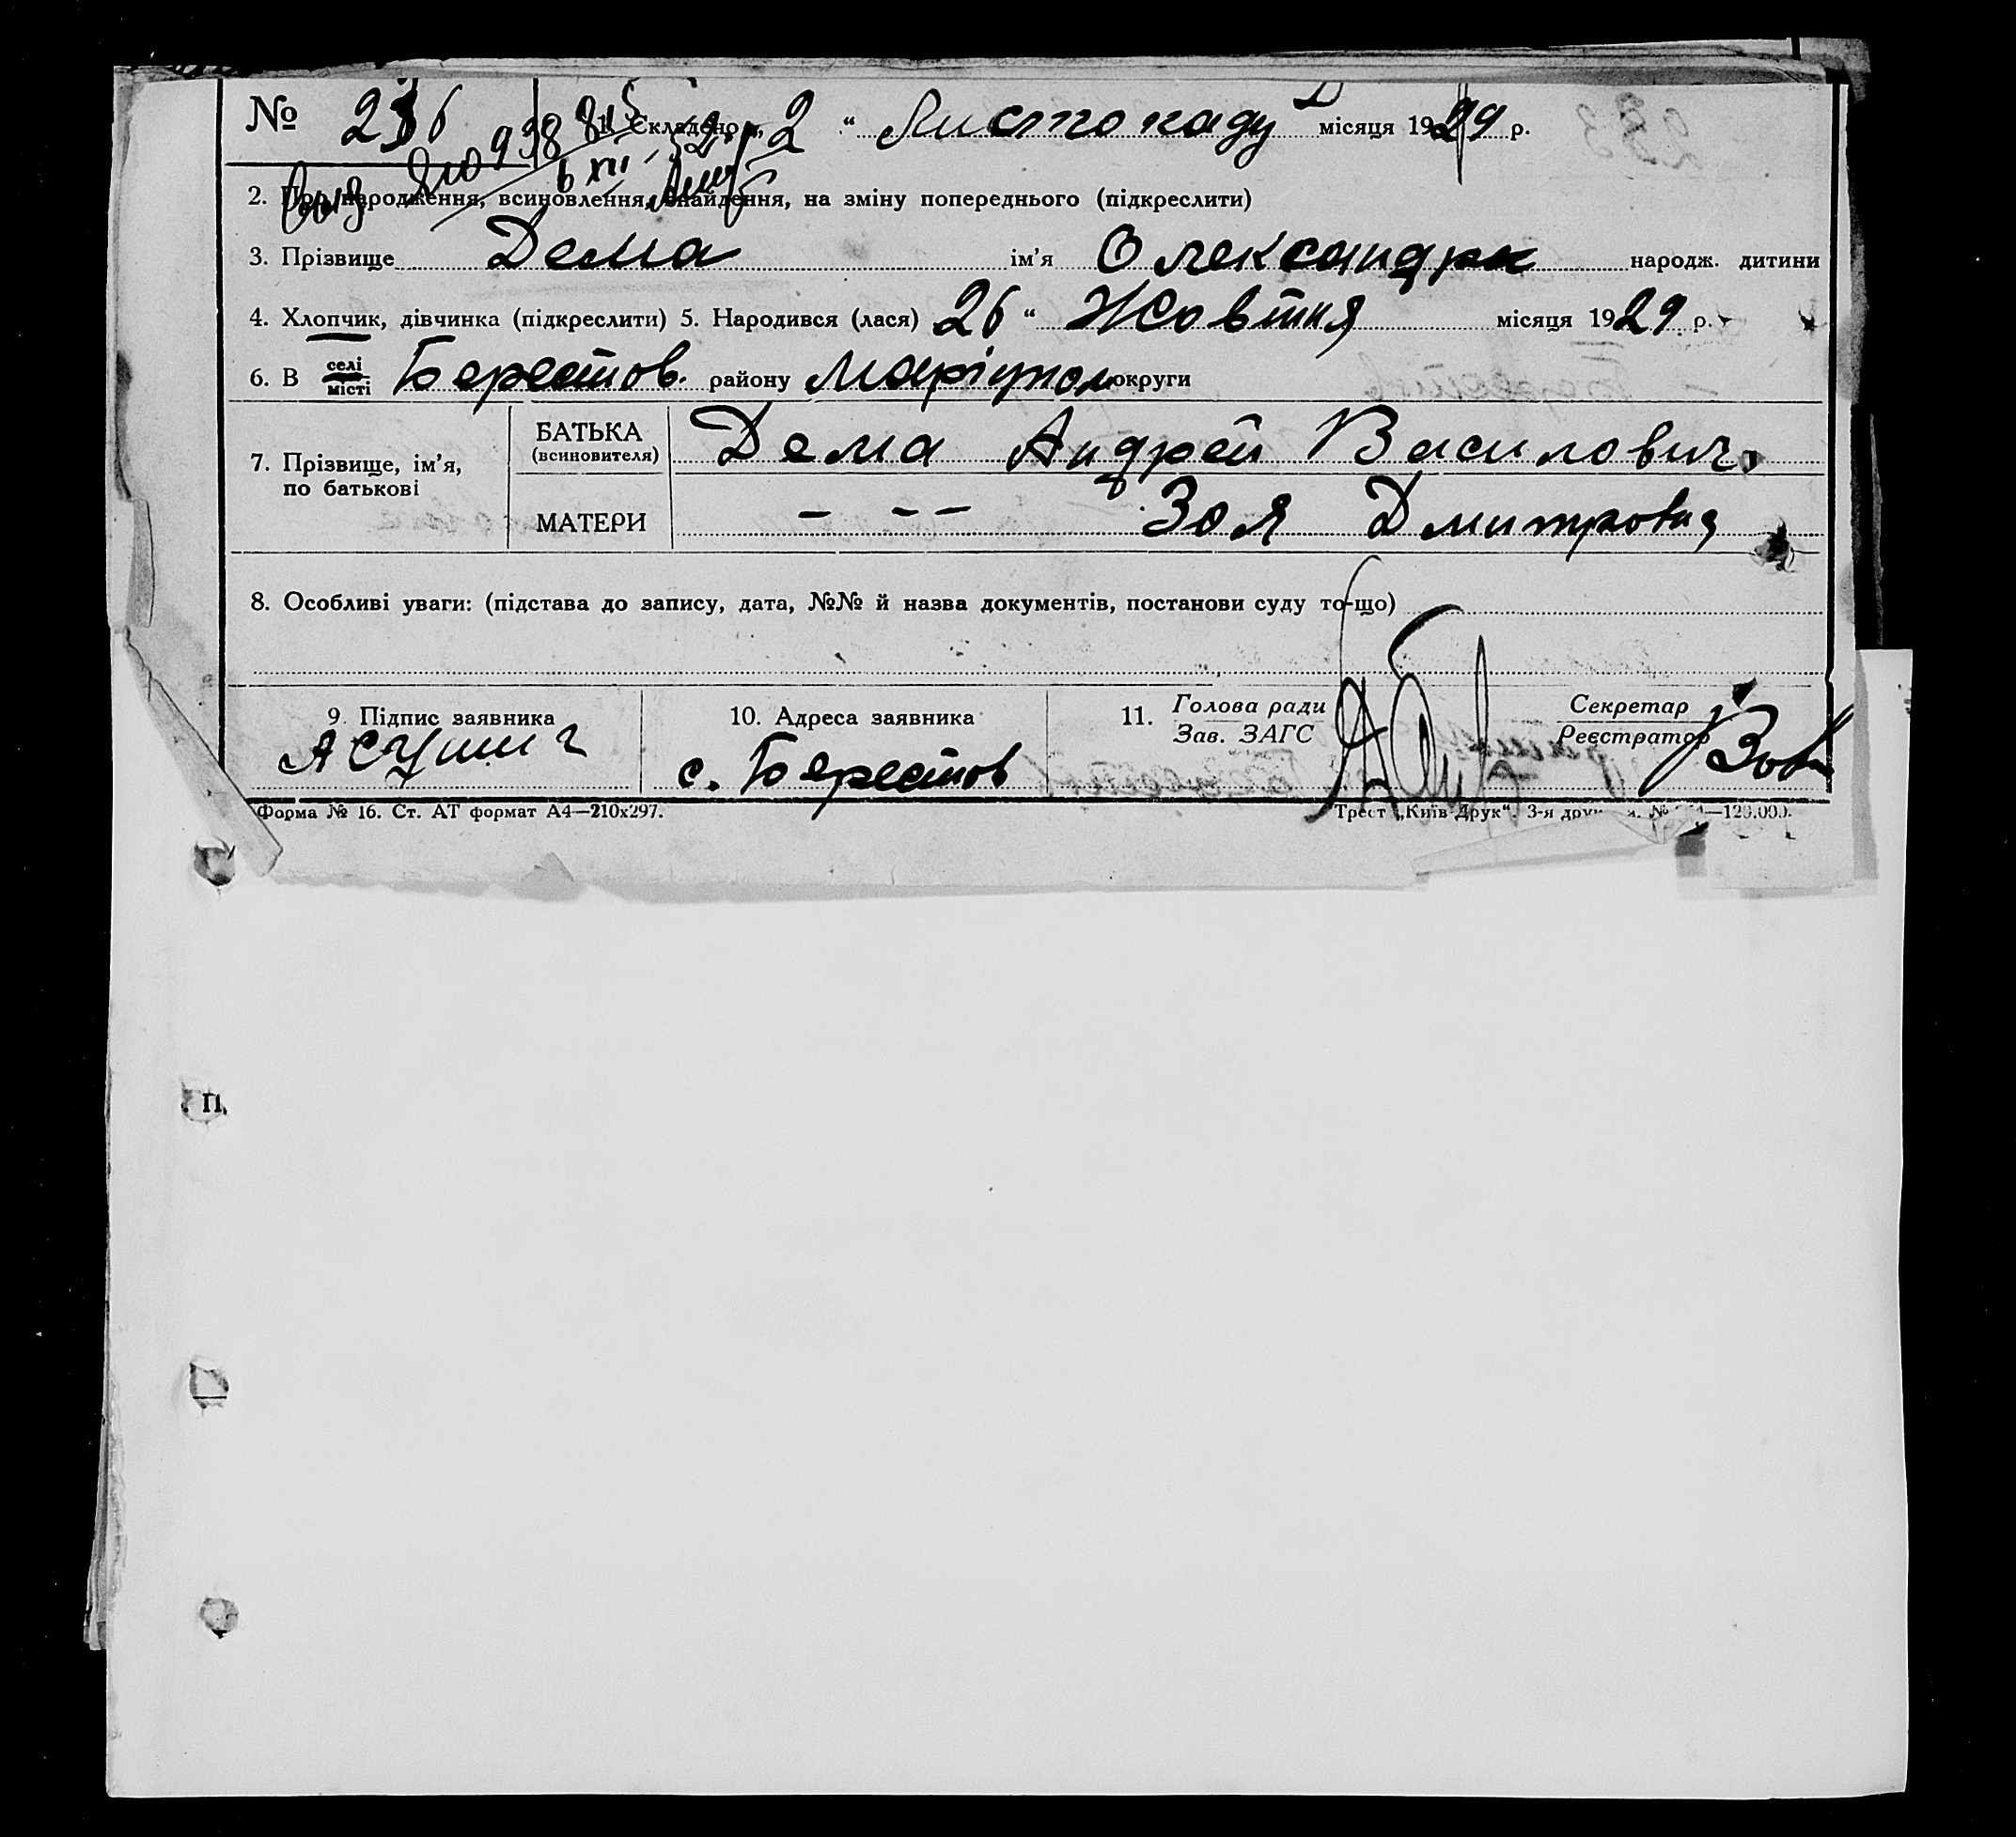 № 236 1. Складено „ 2 “ Листопаду місяця 1929 р.
2. Про народження, всиновлення, знайдення, на зміну попереднього (підкреслити)
3. Прізвище Дема ім'я Олександра народж. дитини
4. Хлопчик, дівчинка (підкреслити) 5. Народився (лася) 26 “ Жовтня місяця 1929 р.
6. В селі місті Берестов. району Маріупол округи
7. Прізвище, ім'я, по батькові
БАТЬКА (всиновителя) Дема Андрей Василович
МАТЕРИ — — — Зоя Дмитровна
8. Особливі уваги: (підстава до запису, дата, №№ й назва документів, постанови суду то-що)
9. Підпис заявника
10. Адреса заявника
с. Берестов
11. Голова ради
Зав. ЗАГС
Секретар
Реєстратор
Форма № 16. Ст. АТ формат А4—210х297.
Трест „Київ-Друк“. 3-я
П.